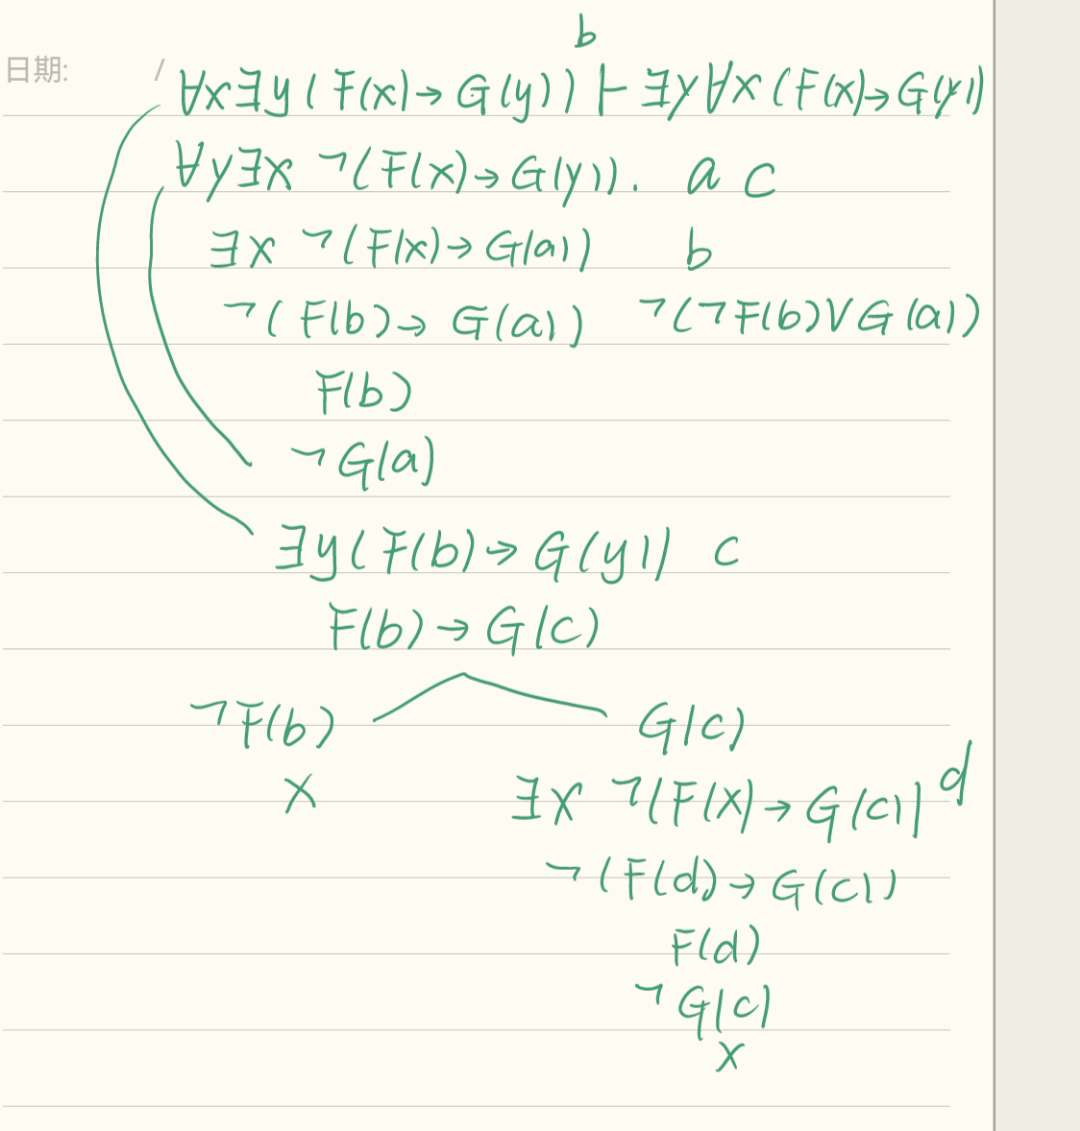 b
日期: /
∀x∃y(F(x)→G(y)) ⊢ ∃y∀x(F(x)→G(y))
∀y∃x ¬(F(x)→G(y)). a c
∃x ¬(F(x)→G(a)) b
¬(F(b)→G(a)) ¬(¬F(b)∨G(a))
F(b)
¬G(a)
∃y(F(b)→G(y)) c
F(b)→G(c)
¬F(b) G(c)
× ∃x ¬(F(x)→G(c)) d
¬(F(d)→G(c))
F(d)
¬G(c)
×